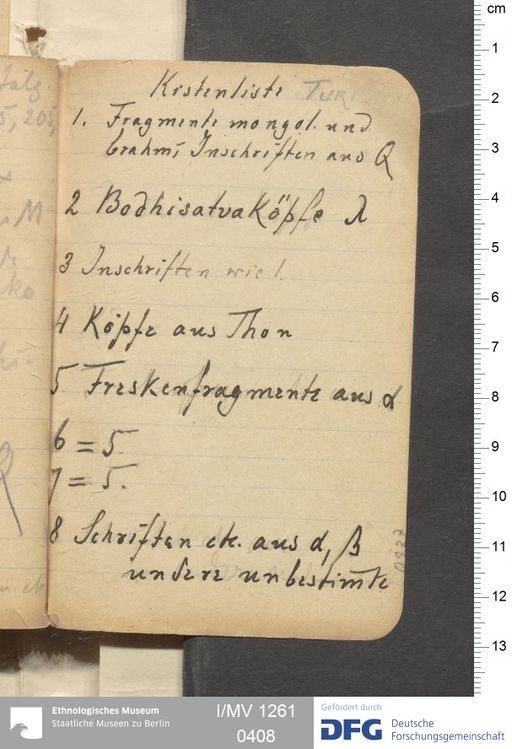 Kistenliste TURF
1. Fragmente mongol. und
brahmi Inschriften aus Q
2 Bodhisatvaköpfe λ
3 Inschriften wie 1.
4 Köpfe aus Thon
5 Freskenfragmente aus α
6 = 5.
7 = 5.
8 Schriften etc. aus α, β
undere unbestim̄te
5, 205,
M
Q
cm
1
2
3
4
5
6
7
8
9
10
11
12
13
Ethnologisches Museum
Staatliche Museen zu Berlin
I/MV 1261
0408
Gefördert durch
DFG
Deutsche
Forschungsgemeinschaft